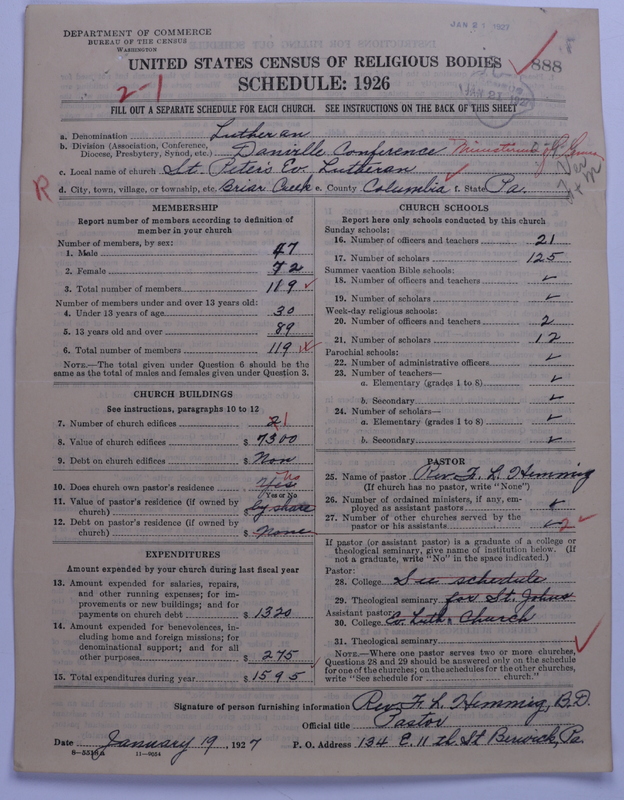 JAN 21 1927
DEPARTMENT OF COMMERCE
BUREAU OF THE CENSUS
WASHINGTON
UNITED STATES CENSUS OF RELIGIOUS BODIES 888
SCHEDULE: 1926
2-1
JAN 21 1927
FILL OUT A SEPARATE SCHEDULE FOR EACH CHURCH. SEE INSTRUCTIONS ON THE BACK OF THIS SHEET
a. Denomination Lutheran
b. Division (Association, Conference, Diocese, Presbytery, Synod, etc.) Danville Conference Ministerium of
c. Local name of church St. Peter's Ev. Lutheran
R d. City, town, village, or township, etc. Briar Creek e. County Columbia f. State Pa.
MEMBERSHIP
Report number of members according to definition of member in your church
Number of members, by sex:
1. Male 47
2. Female 72
3. Total number of members 119
Number of members under and over 13 years old:
4. Under 13 years of age 30
5. 13 years old and over 89
6. Total number of members 119
NOTE.—The total given under Question 6 should be the same as the total of males and females given under Question 3.
CHURCH BUILDINGS
See instructions, paragraphs 10 to 12
7. Number of church edifices 2 1
8. Value of church edifices $ 7300
9. Debt on church edifices $ Non
10. Does church own pastor's residence Yes No
Yes or No
11. Value of pastor's residence (if owned by church) $ by share
12. Debt on pastor's residence (if owned by church) $ None
EXPENDITURES
Amount expended by your church during last fiscal year
13. Amount expended for salaries, repairs, and other running expenses; for improvements or new buildings; and for payments on church debt $ 1320
14. Amount expended for benevolences, including home and foreign missions; for denominational support; and for all other purposes $ 275
15. Total expenditures during year $ 1595
CHURCH SCHOOLS
Report here only schools conducted by this church
Sunday schools:
16. Number of officers and teachers 21
17. Number of scholars 125
Summer vacation Bible schools:
18. Number of officers and teachers ✓
19. Number of scholars ✓
Week-day religious schools:
20. Number of officers and teachers 2
21. Number of scholars 12
Parochial schools:
22. Number of administrative officers ✓
23. Number of teachers—
a. Elementary (grades 1 to 8) ✓
b. Secondary ✓
24. Number of scholars—
a. Elementary (grades 1 to 8) ✓
b. Secondary ✓
PASTOR
25. Name of pastor Rev. F. L. Hemmig
(If church has no pastor, write "None")
26. Number of ordained ministers, if any, employed as assistant pastors
27. Number of other churches served by the pastor or his assistants 2
If pastor (or assistant pastor) is a graduate of a college or theological seminary, give name of institution below. (If not a graduate, write "No" in the space indicated.)
Pastor:
28. College See schedule
29. Theological seminary for St. Johns
Assistant pastor:
30. College Ev. Luth. Church
31. Theological seminary
NOTE.—Where one pastor serves two or more churches, Questions 28 and 29 should be answered only on the schedule for one of the churches; on the schedules for the other churches, write "See schedule for church."
Signature of person furnishing information Rev. F. L. Hemmig, B.D.
Official title Pastor
Date January 19, 1927 P. O. Address 134 E. 11 th. St Berwick, Pa.
8-5518a 11-9024